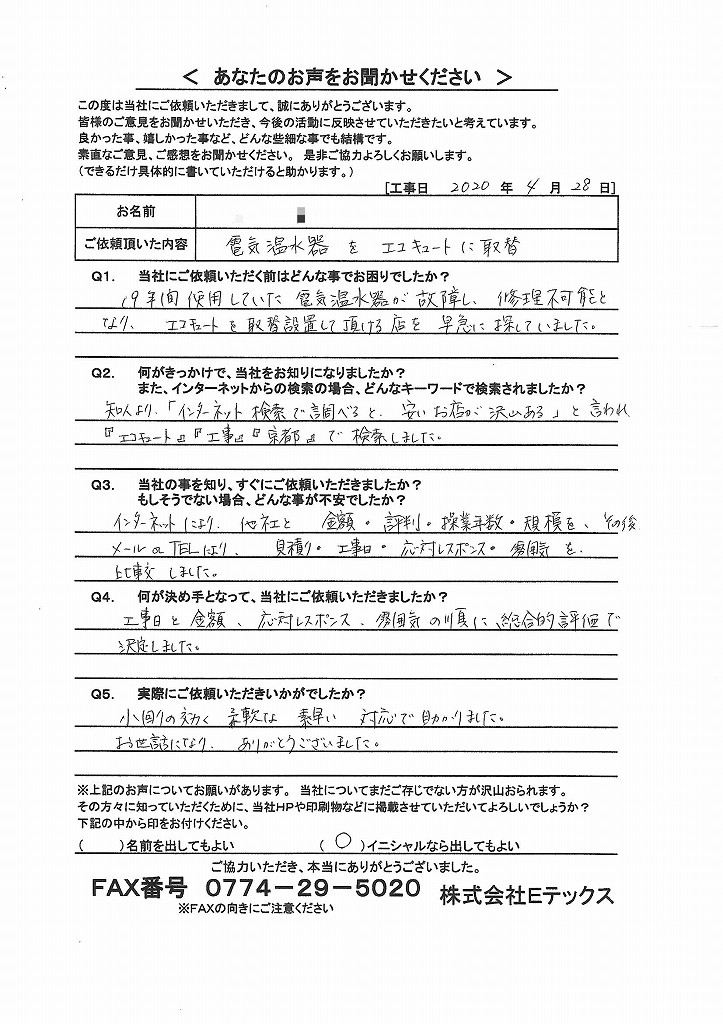 ＜ あなたのお声をお聞かせください ＞
この度は当社にご依頼いただきまして、誠にありがとうございます。
皆様のご意見をお聞かせいただき、今後の活動に反映させていただきたいと考えています。
良かった事、嬉しかった事など、どんな些細な事でも結構です。
素直なご意見、ご感想をお聞かせください。 是非ご協力よろしくお願いします。
（できるだけ具体的に書いていただけると助かります。）
[工事日 2020 年 4 月 28 日]
お名前
ご依頼頂いた内容 電気温水器 を エコキュートに取替
Q1. 当社にご依頼いただく前はどんな事でお困りでしたか？
19年間使用していた 電気温水器が 故障し、修理不可能と
なり、エコキュートを取替設置して頂ける店を 早急に探していました。
Q2. 何がきっかけで、当社をお知りになりましたか？
また、インターネットからの検索の場合、どんなキーワードで検索されましたか？
知人より、「インターネット検索で調べると、安いお店が沢山ある」と言われ
『エコキュート』『工事』『京都』で検索しました。
Q3. 当社の事を知り、すぐにご依頼いただきましたか？
もしそうでない場合、どんな事が不安でしたか？
インターネットにより、他社と 金額・評判・操業年数・規模を、その後
メール or TELにより、見積り・工事日・応対レスポンス・雰囲気 を、
比較しました。
Q4. 何が決め手となって、当社にご依頼いただきましたか？
工事日と金額、応対レスポンス、雰囲気の順に、総合的評価で
決定しました。
Q5. 実際にご依頼いただきいかがでしたか？
小回りの効く 柔軟な 素早い 対応で助かりました。
お世話になり、ありがとうございました。
※上記のお声についてお願いがあります。 当社についてまだご存じでない方が沢山おられます。
その方々に知っていただくために、当社ＨＰや印刷物などに掲載させていただいてよろしいでしょうか？
下記の中から印をお付けください。
（ ）名前を出してもよい （ ○ ）イニシャルなら出してもよい
ご協力いただき、本当にありがとうございました。
FAX番号 0774－29－5020 株式会社Eテックス
※FAXの向きにご注意ください